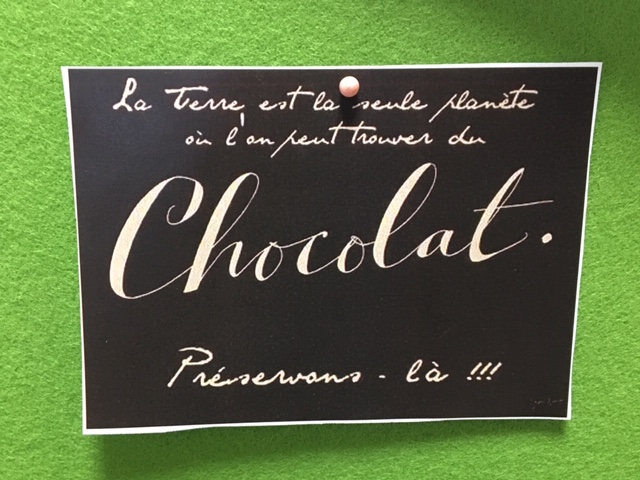 La Terre est la seule planète
où l'on peut trouver du
Chocolat.
Préservons-là !!!